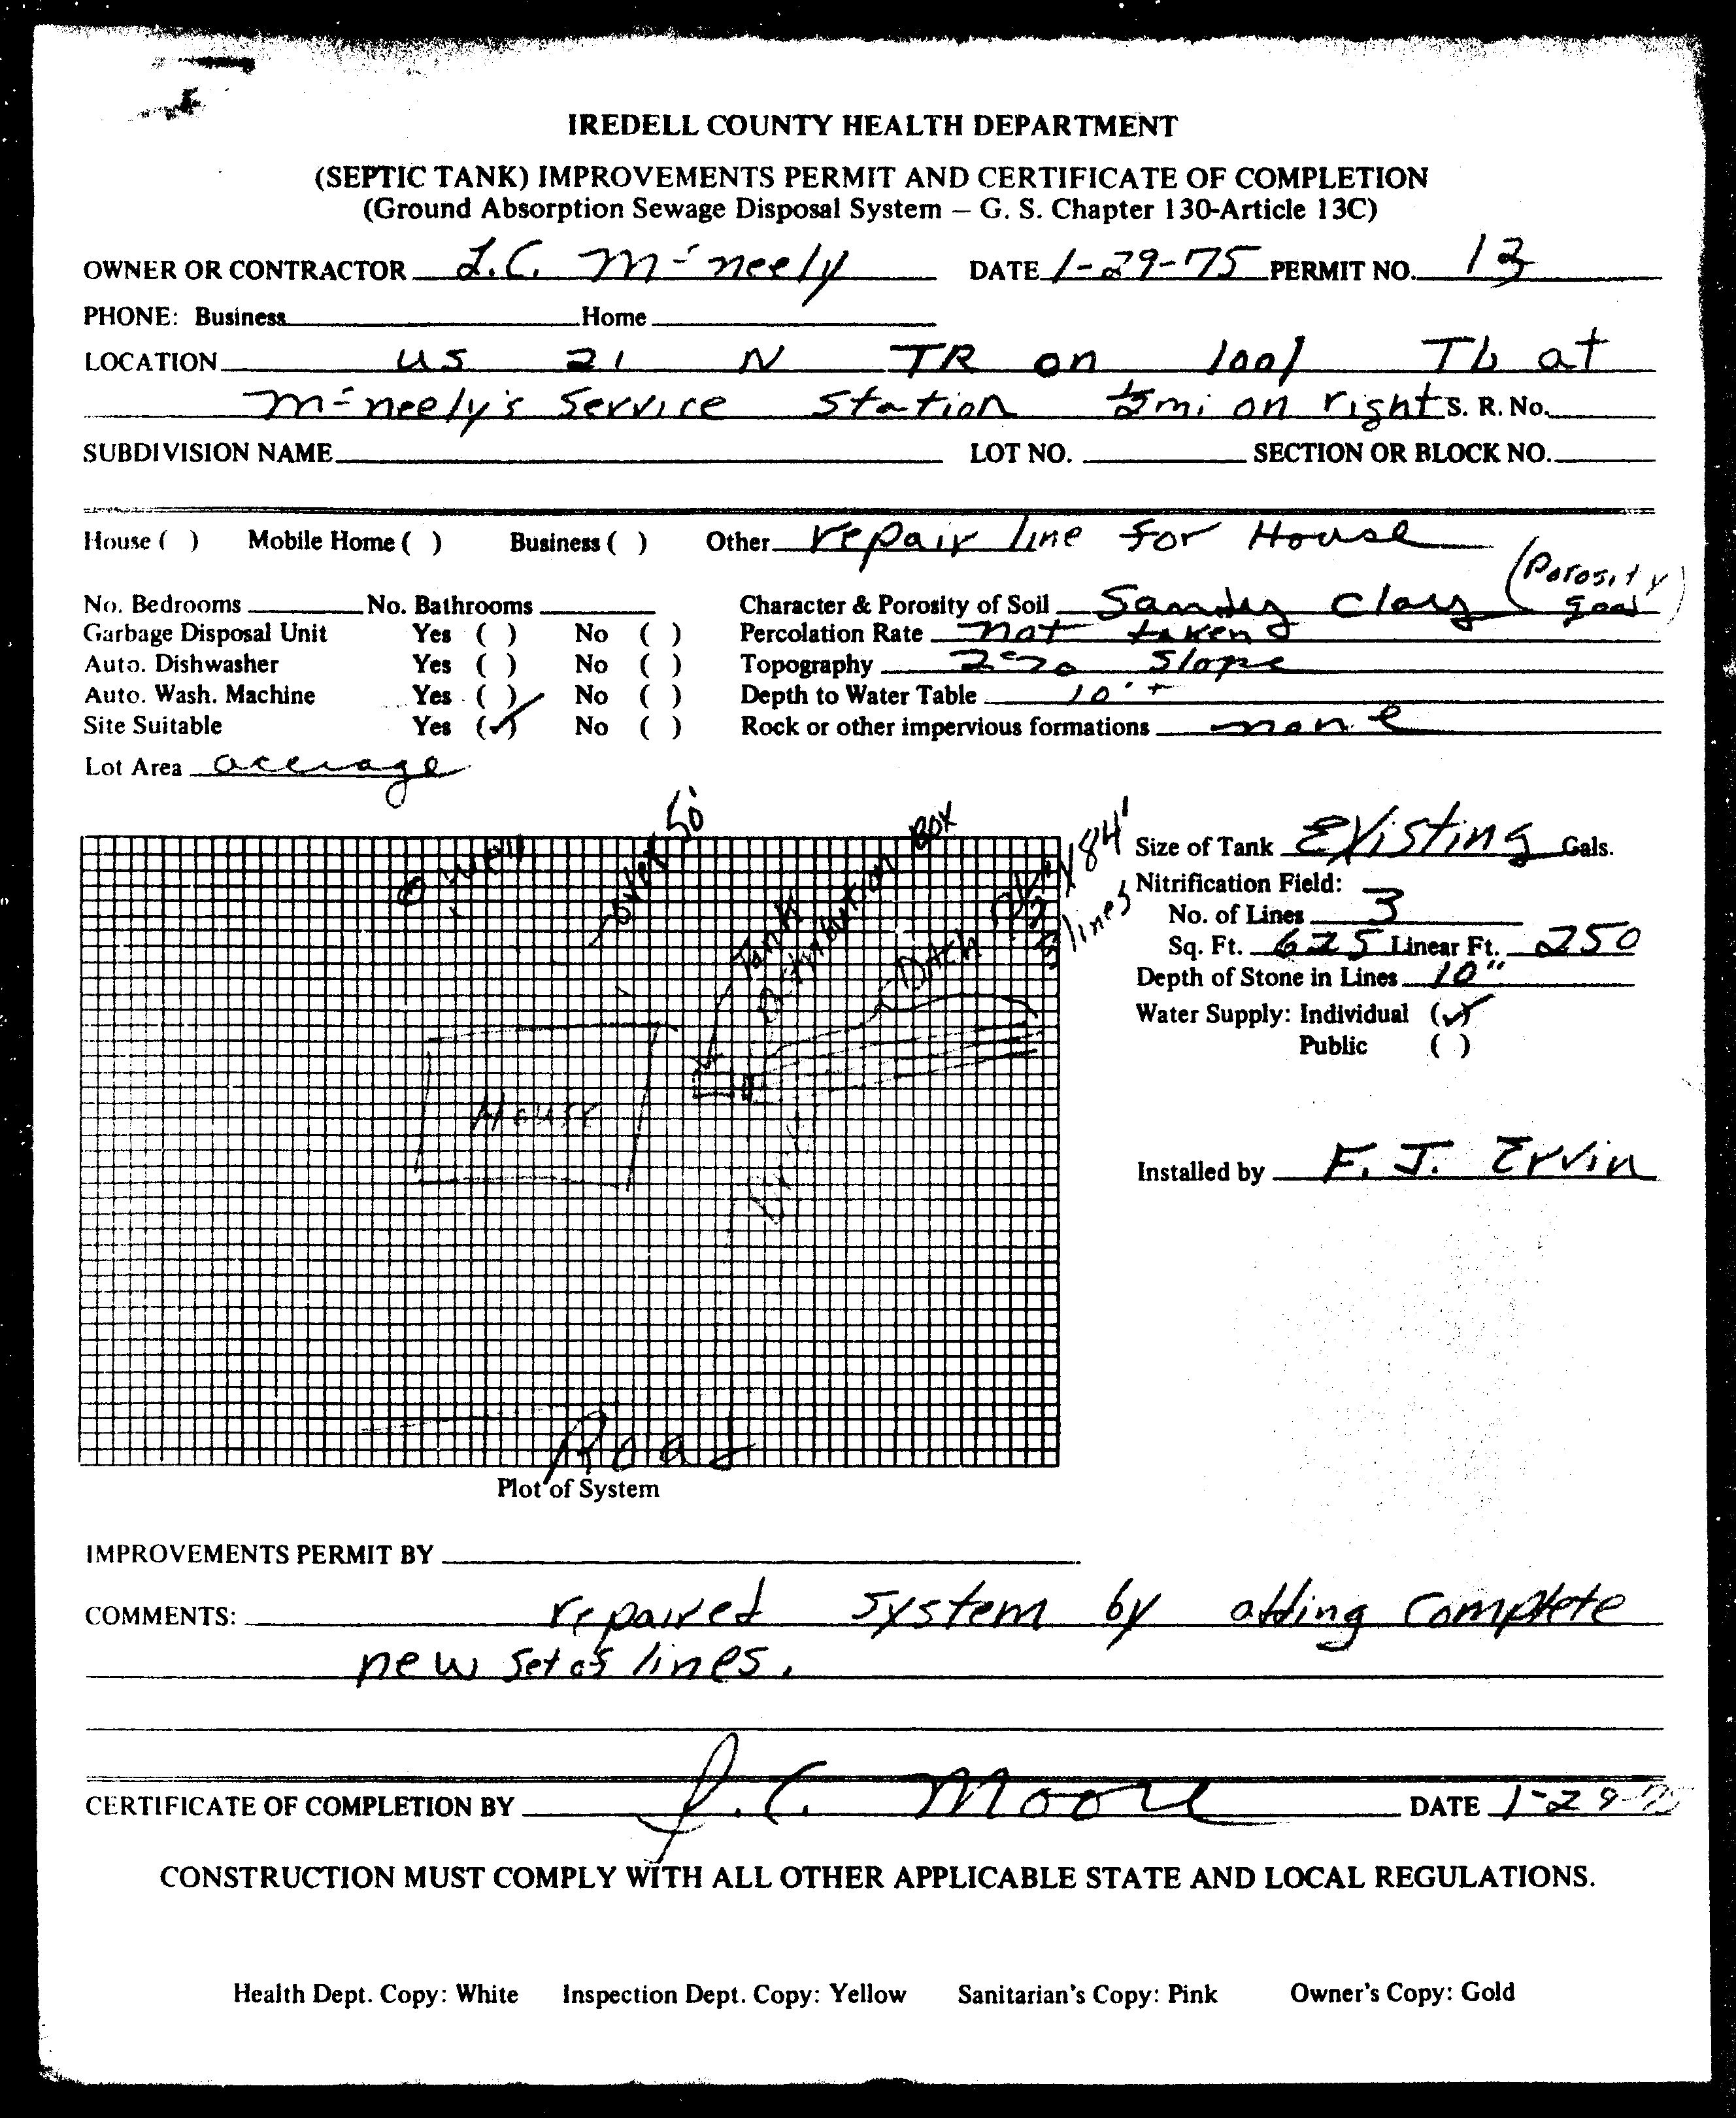 IREDELL COUNTY HEALTH DEPARTMENT
(SEPTIC TANK) IMPROVEMENTS PERMIT AND CERTIFICATE OF COMPLETION
(Ground Absorption Sewage Disposal System – G. S. Chapter 130-Article 13C)
OWNER OR CONTRACTOR L.C. Mc neely DATE 1-29-75 PERMIT NO. 13
PHONE: Business Home
LOCATION US 21 N TR on 1001 TL at
Mc neely's Service Station ½ mi on right S. R. No.
SUBDIVISION NAME LOT NO. SECTION OR BLOCK NO.
House ( ) Mobile Home ( ) Business ( ) Other repair line for House
No. Bedrooms No. Bathrooms Character & Porosity of Soil Sandy clay (Porosity good)
Garbage Disposal Unit Yes ( ) No ( ) Percolation Rate not taken
Auto. Dishwasher Yes ( ) No ( ) Topography 2% slope
Auto. Wash. Machine Yes ( ) No ( ) Depth to Water Table 10' +
Site Suitable Yes (✓) No ( ) Rock or other impervious formations none
Lot Area accerage
well
over 50'
Tank
Distribution BOX
Ditch
x 84'
3 lines
House
Road
Plot of System
Size of Tank Existing Gals.
Nitrification Field:
No. of Lines 3
Sq. Ft. 625 Linear Ft. 250
Depth of Stone in Lines 10"
Water Supply: Individual (✓)
Public ( )
Installed by F. J. Ervin
IMPROVEMENTS PERMIT BY
COMMENTS: repaired system by adding complete
new set of lines.
CERTIFICATE OF COMPLETION BY J.C. Moore DATE 1-29-75
CONSTRUCTION MUST COMPLY WITH ALL OTHER APPLICABLE STATE AND LOCAL REGULATIONS.
Health Dept. Copy: White Inspection Dept. Copy: Yellow Sanitarian's Copy: Pink Owner's Copy: Gold